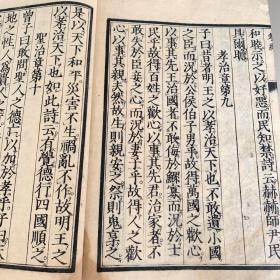 和睦示之以好惡而民知禁詩云赫赫師尹民
具爾瞻
孝治章第九
子曰昔者明王之以孝治天下也不敢遺小國
之臣而況於公侯伯子男乎故得萬國之歡心
以事其先王治國者不敢侮於鰥寡而況於士
民乎故得百姓之歡心以事其先君治家者不
敢失於臣妾之心而況於妻子乎故得人之歡
心以事其親夫然故生則親安之祭則鬼享之
是以天下和平災害不生禍亂不作故明王之
以孝治天下也如此詩云有覺德行四國順之
聖治章第十
曾子曰敢問聖人之德無以加於孝乎子曰
地之性人